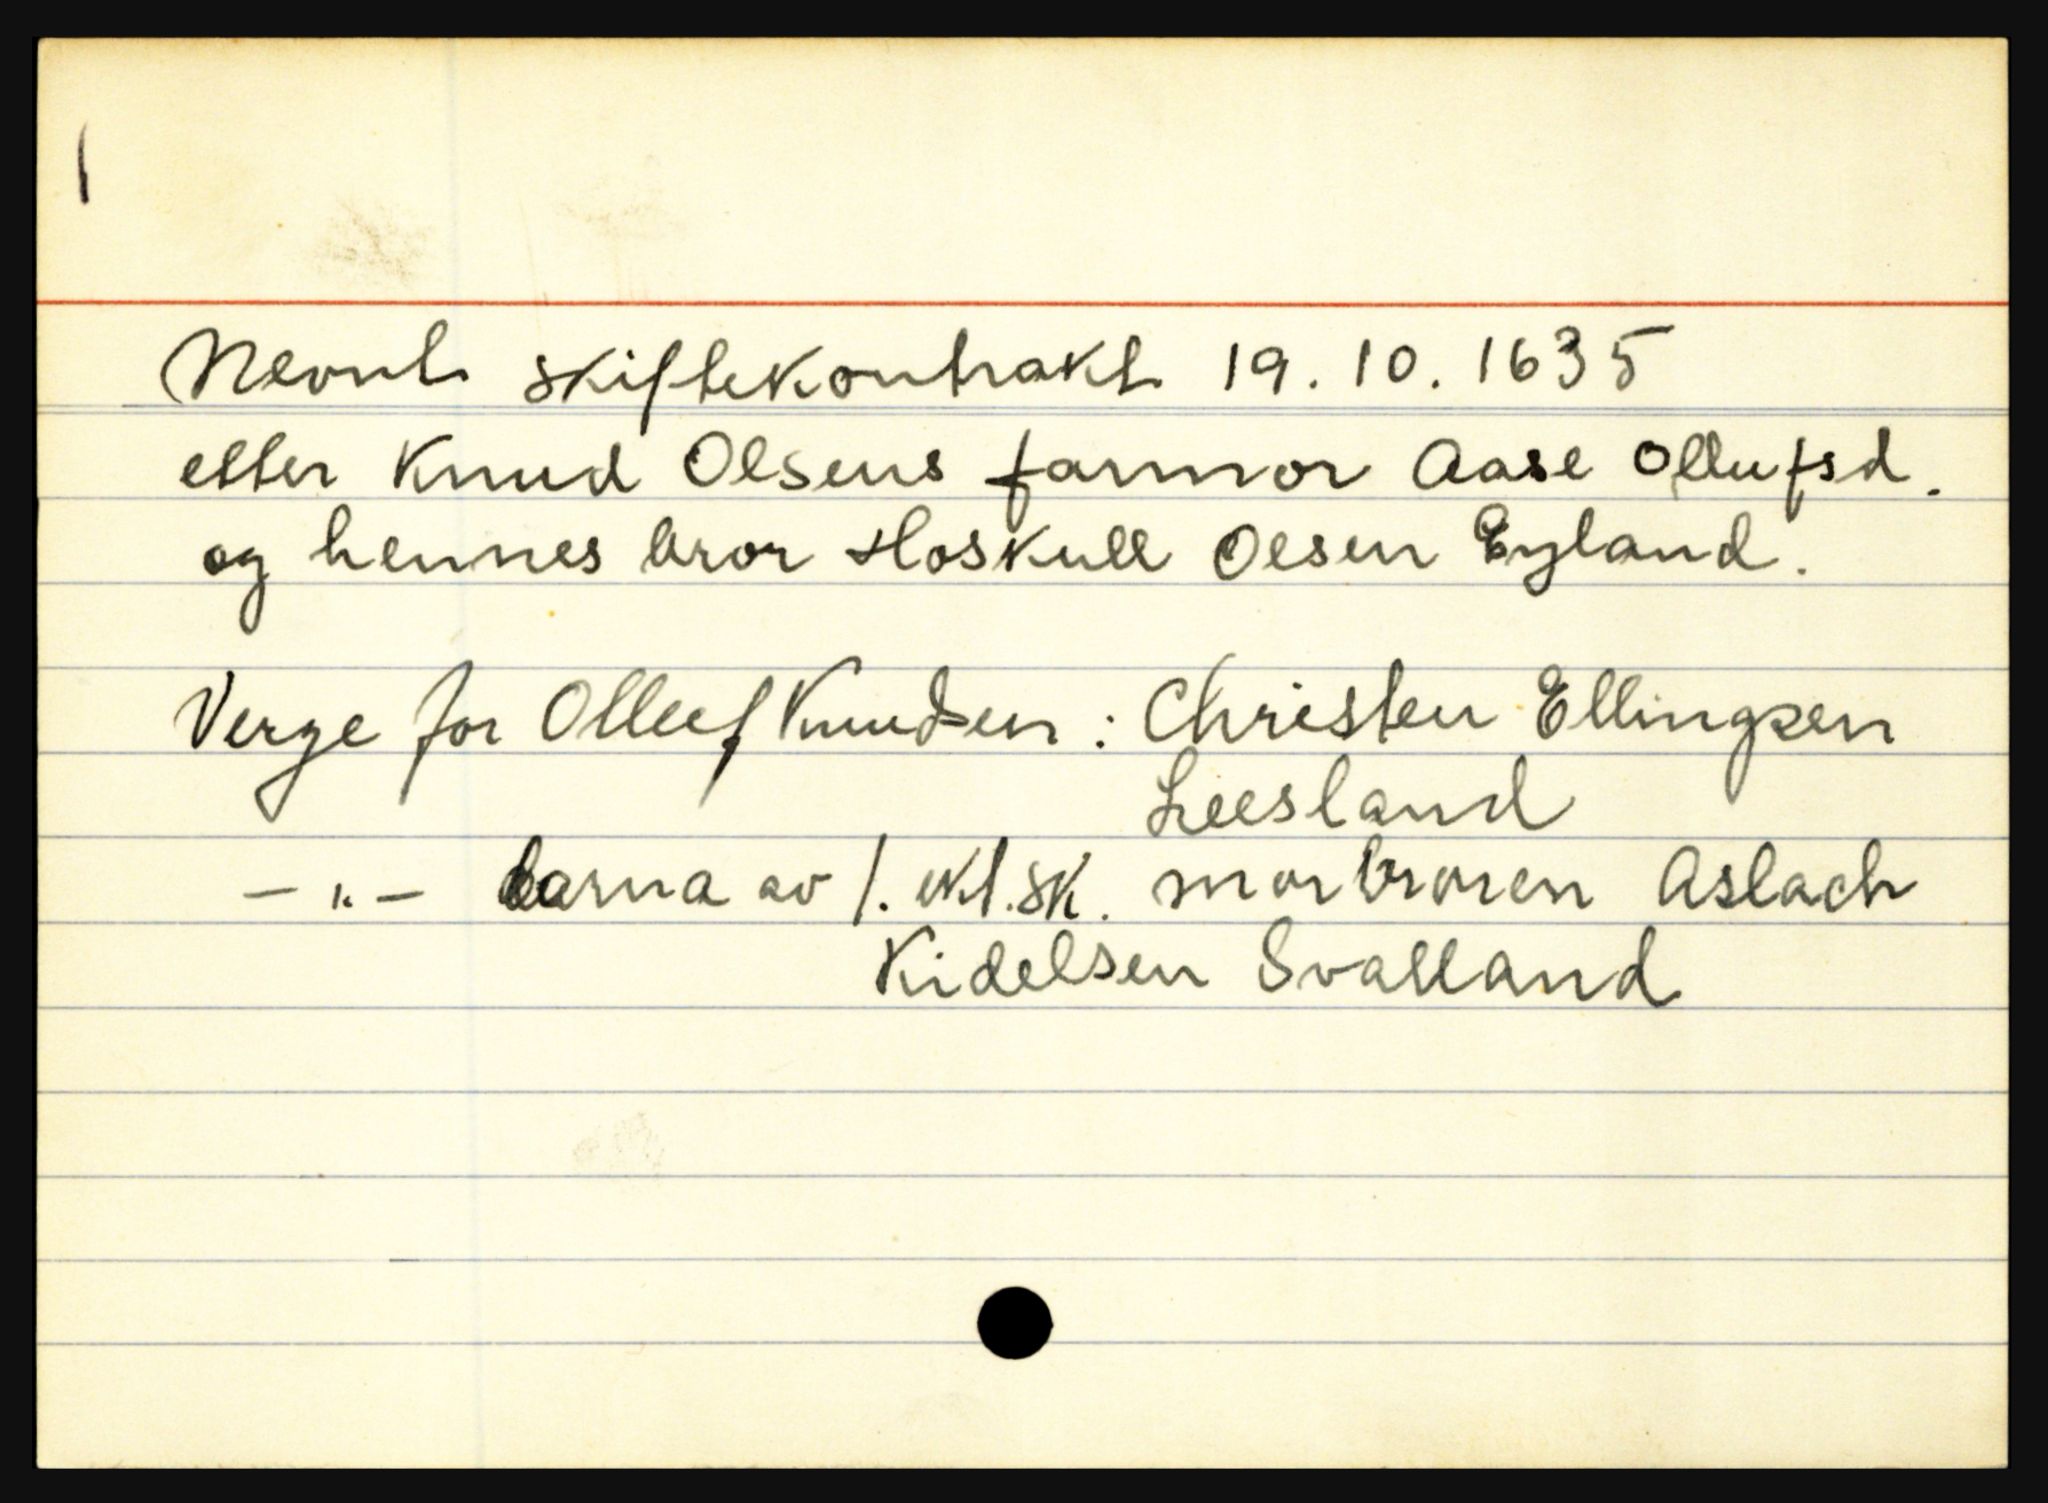 Nevnt skiftekontrakt 19.10.1635
etter Knud Olsens farmor Aase Ollufsd.
og hennes bror Hoskull Olsen Eyland.
Verge for Olluf Knudsen: Christen Ellingsen
Liesland
— " — barna av 1. ekt.sk. morbroren Aslach
Kidelsen Svalland